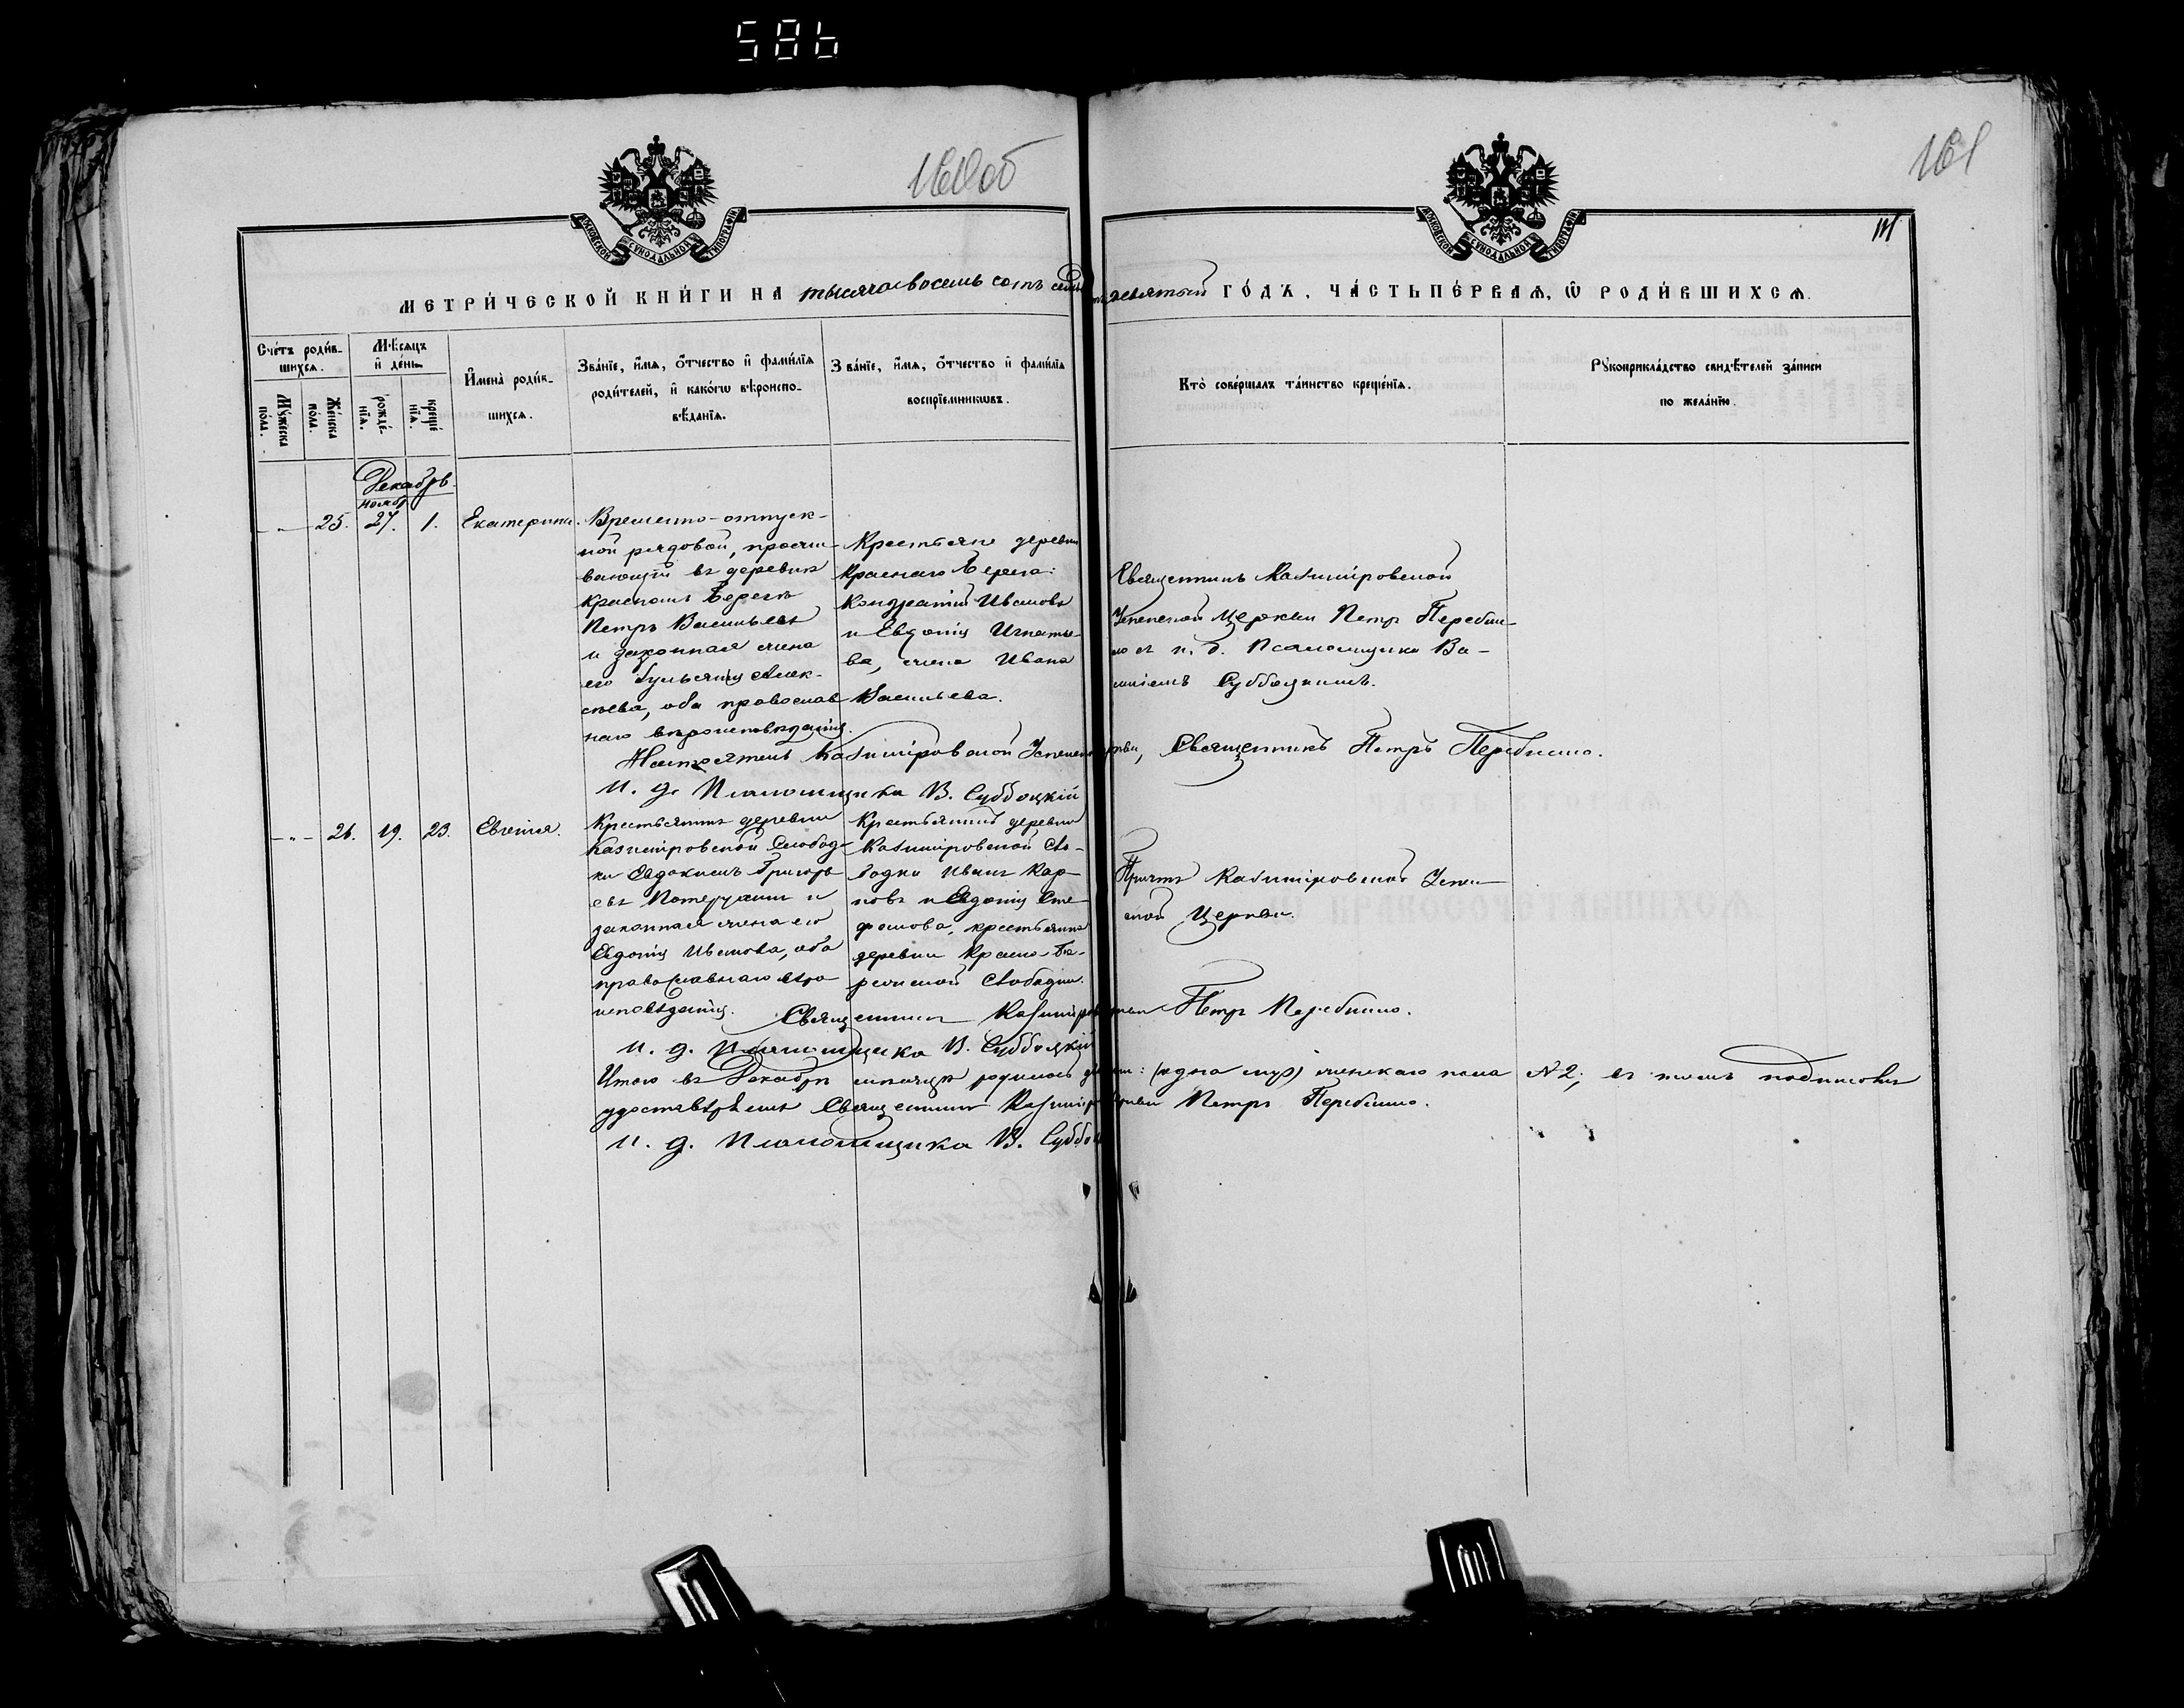 586
160об
161
МОСКОВСКОЙ СѴНОДАЛЬНОЙ ТИПОГРАФІИ
МОСКОВСКОЙ СѴНОДАЛЬНОЙ ТИПОГРАФІИ
МЕТРИ́ЧЕСКОЙ КНИ́ГИ НА тысяча восемь сотъ девятый ГО́ДЪ, ЧА́СТЬ ПЕ́РВАѦ, Ѡ РОДИ́ВШИХСѦ.
Сче́тъ роди́в-
шихсѧ.
Мꙋ́жеска по́ла.
Же́нска по́ла.
Мѣ́сѧцъ
и҆ де́нь
рожде́-
нїѧ.
креще́
нїѧ.
И҆мена̀ роди́в-
шихсѧ.
Зва́нїе, и҆́мѧ, о҆́тчество и҆ фами́лїѧ
роди́телей, и҆ како́гѡ вѣроиспо-
вѣ́данїѧ.
Зва́нїе, и҆́мѧ, о҆́тчество и҆ фами́лїѧ
воспрїе́мникѡвъ.
Кто̀ соверша́лъ та́инство креще́нїѧ.
Рꙋкоприкла́дство свидѣ́телей за́писи
по жела́нїю.
Декабрь.
Ноябр
25. 27. 1. Екатерина.
Временно-отпуск-
ной рядовой, прожи-
вающій въ деревнѣ
Красномъ Берегѣ
Петръ Васильевъ
и законная жена
его Алек-
сѣева, оба православ
наго вѣроисповѣданія.
Крестьяне деревни
Краснаго Берега:
Кондратій Ивановъ
и Евдокія Игнатье-
ва, жена Ивана
Васильева.
Священникъ Казимировской
Успенской Церкви Петръ Переби-
ло съ и. д. Псаломщика Ва-
силіемъ Суббоцкимъ.
Настоятель Казимировской Успенск церкви, Священникъ Петръ Перебилло.
И. д. Псаломщика В. Суббоцкій
26. 19. 23. Евгенія.
Крестьянинъ деревни
Казимировской Слобод-
ки Евдокимъ Григорь
евъ и
законная жена его
Евдокія Иванова, оба
православнаго вѣро
исповѣданія.
Крестьянинъ деревни
Казимировской Сло-
бодки Иванъ Кар-
повъ и Евдокія Сте-
фанова, крестьянка
деревни Красно-Бе-
режской Слободки.
Причтъ Казимировской Успен
ской Церкви.
Священникъ Казимиров церкви Петръ Перебилло.
И. д. Псаломщика В. Суббоцкій
Итого въ Декабрѣ мѣсяцѣ родилось женскаго пола № 2; въ томъ подписомъ
удостовѣряемъ Священникъ Казимир церкви Петръ Перебилло.
И. д. Псаломщика В. Суббоц